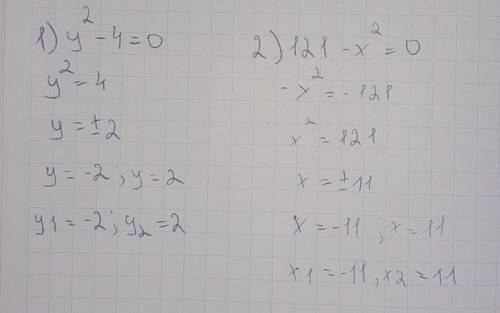 1) y² - 4 = 0
y² = 4
y = ±2
y = -2 ; y = 2
y1 = -2 ; y₂ = 2
2) 121 - x² = 0
-x² = -121
x² = 121
x = ±11
x = -11 ; x = 11
x1 = -11, x2 = 11